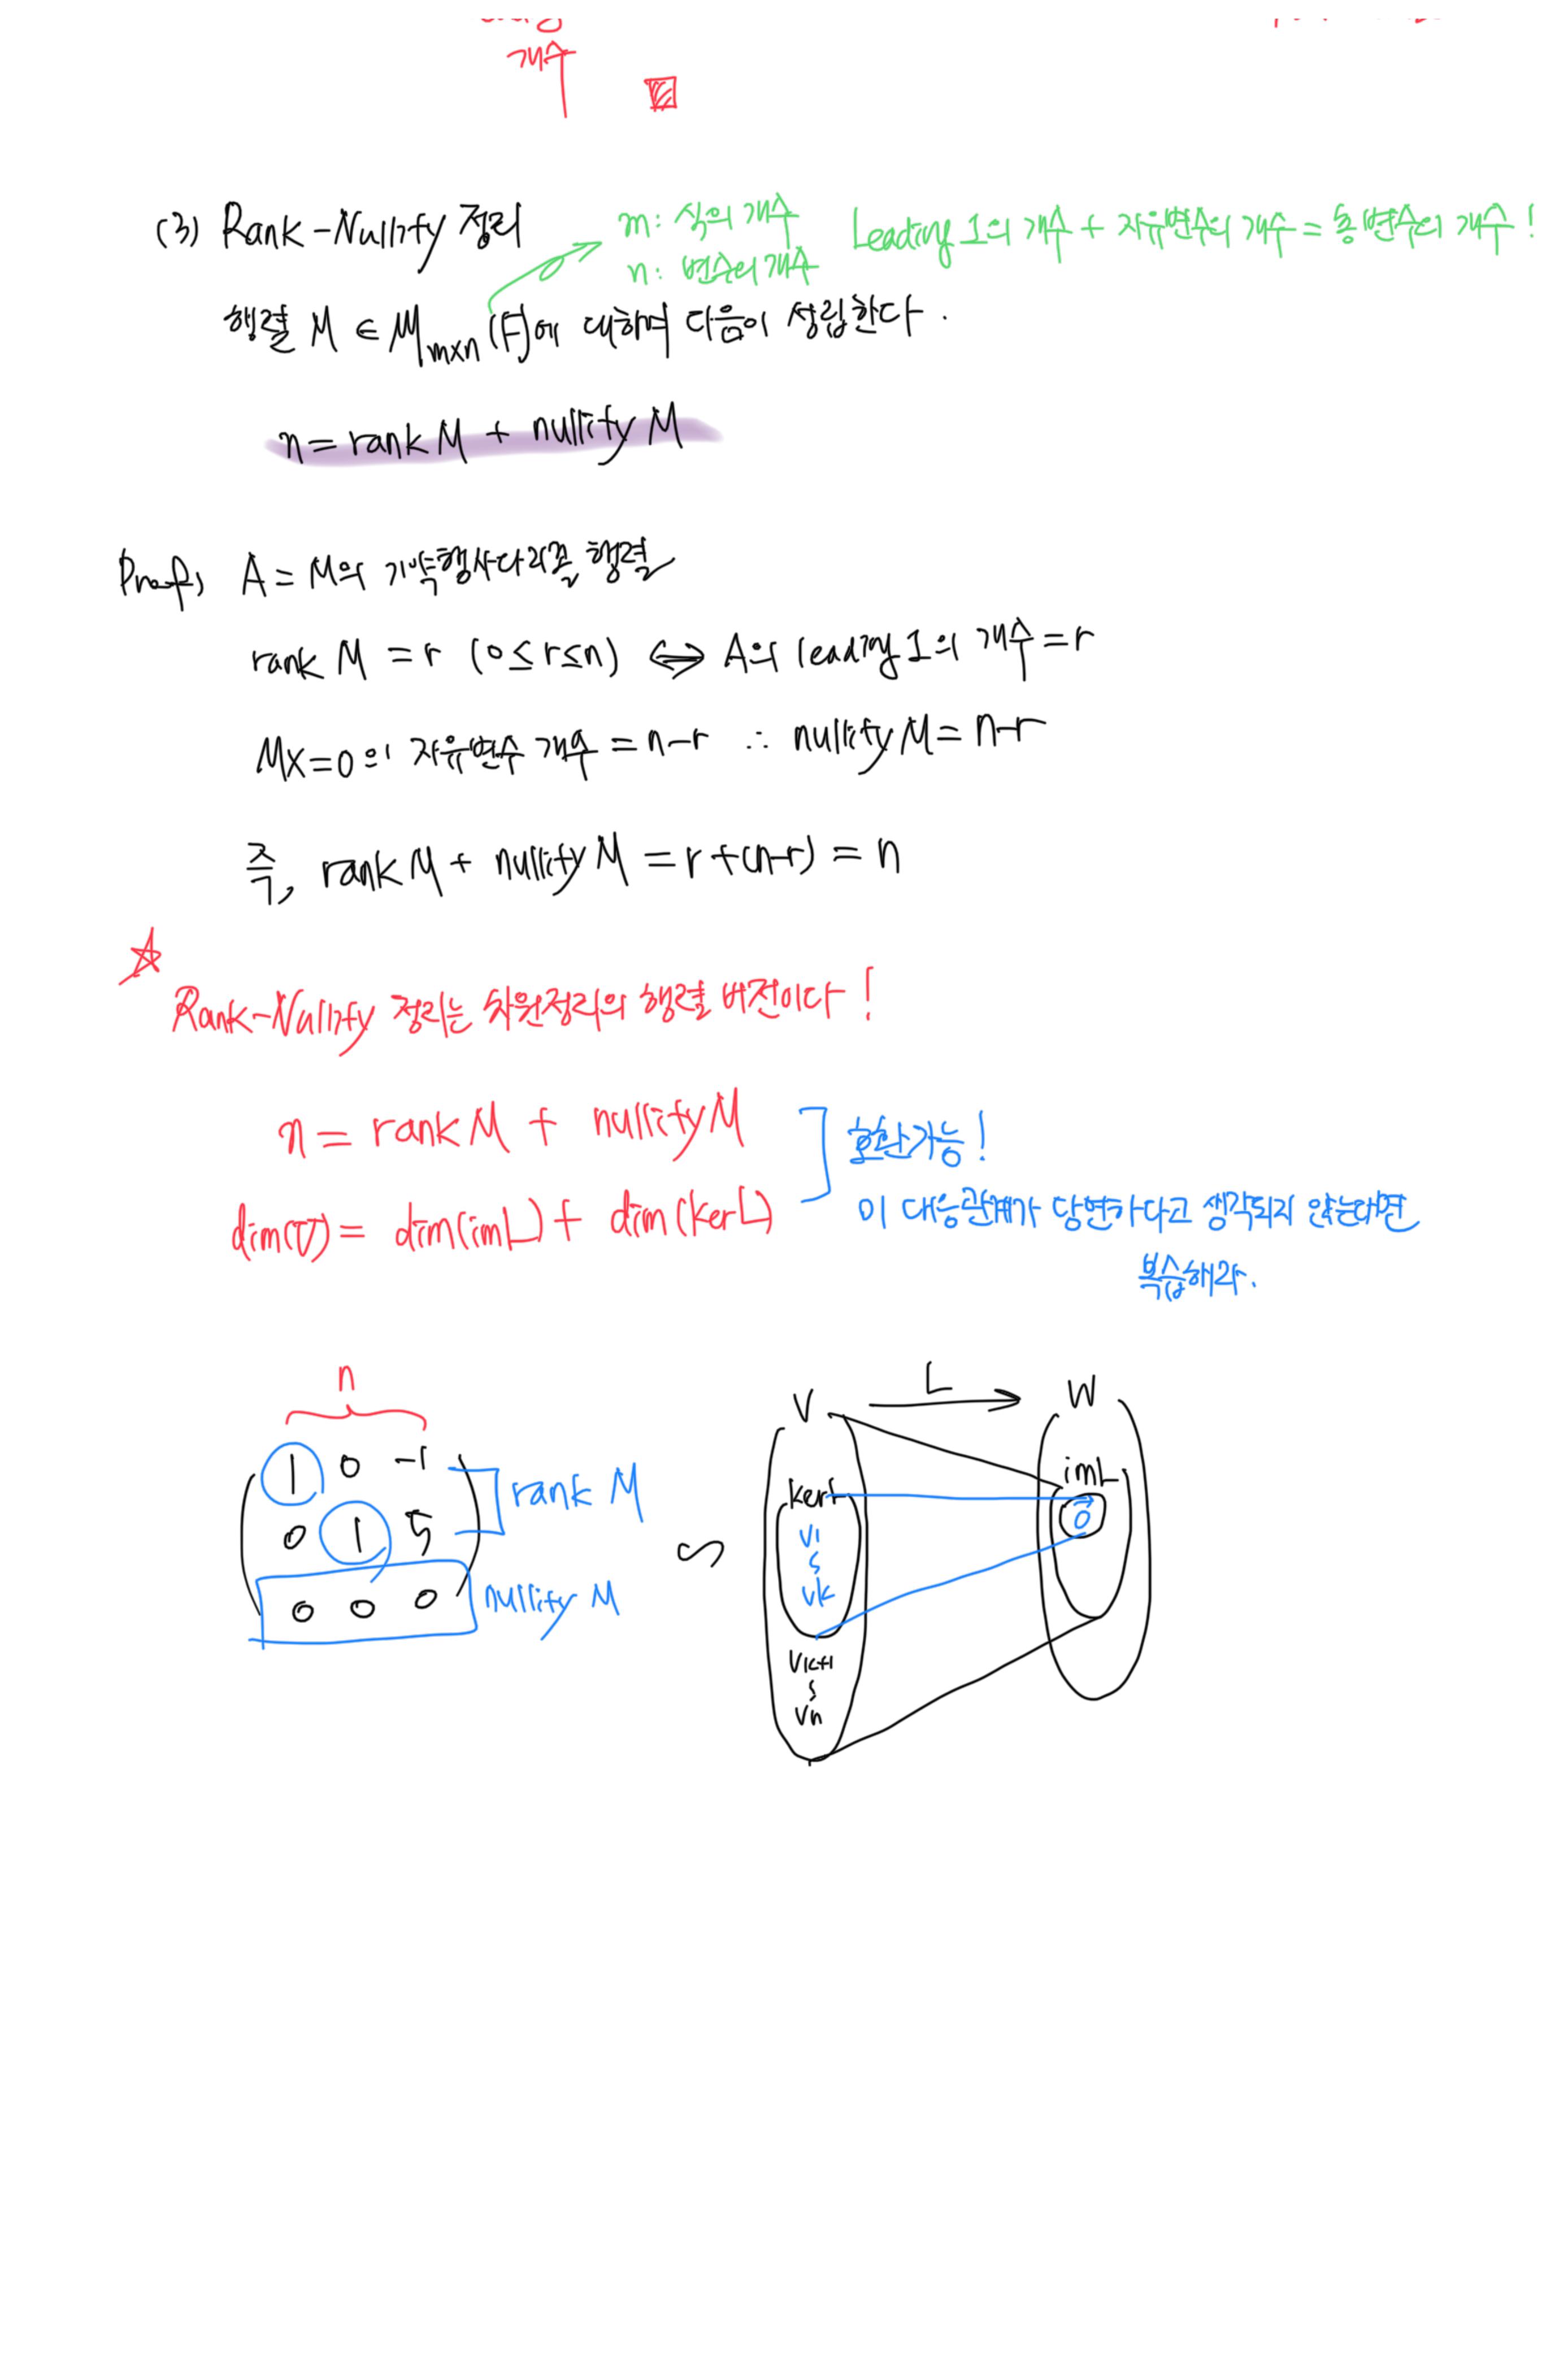 개수
(3) Rank-Nullity 정리
m: 식의 개수
n: 변수의 개수
Leading 1의 개수 + 자유변수의 개수 = 총 변수의 개수!
행렬 M ∈ M_{m×n}(F)에 대하여 다음이 성립한다.
n = rank M + nullity M
Proof) A = M의 기약행사다리꼴 행렬
rank M = r (0 ≤ r ≤ n) ⟺ A의 leading 1의 개수 = r
MX = 0의 자유변수 개수 = n-r ∴ nullity M = n-r
즉, rank M + nullity M = r + (n-r) = n
☆
Rank-Nullity 정리는 차원정리의 행렬 버전이다!
n = rank M + nullity M
dim(V) = dim(imL) + dim(kerL)
호환가능!
이 대응관계가 당연하다고 생각되지 않는다면
복습해라.
n
1 0 -1
0 1 5
0 0 0
rank M
nullity M
∽
V L W
kerL
v1
vk
vk+1
vn
imL
0